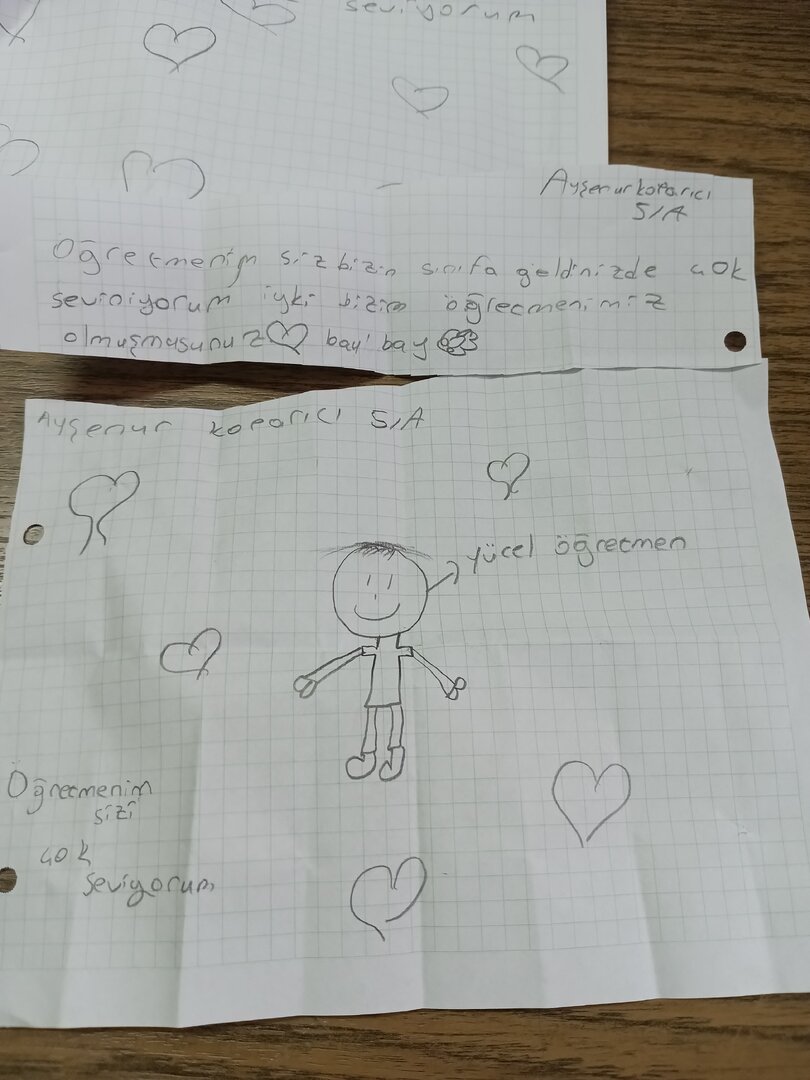 seviyorum
Ayşenur koparıcı
5/A
Öğretmenim siz bizin sınıfa geldinizde çok
seviniyorum iyki bizim öğretmenimiz
olmuşmusunuz bay bay
Ayşenur koparıcı 5/A
yücel öğretmen
Öğretmenim
sizi
çok
seviyorum